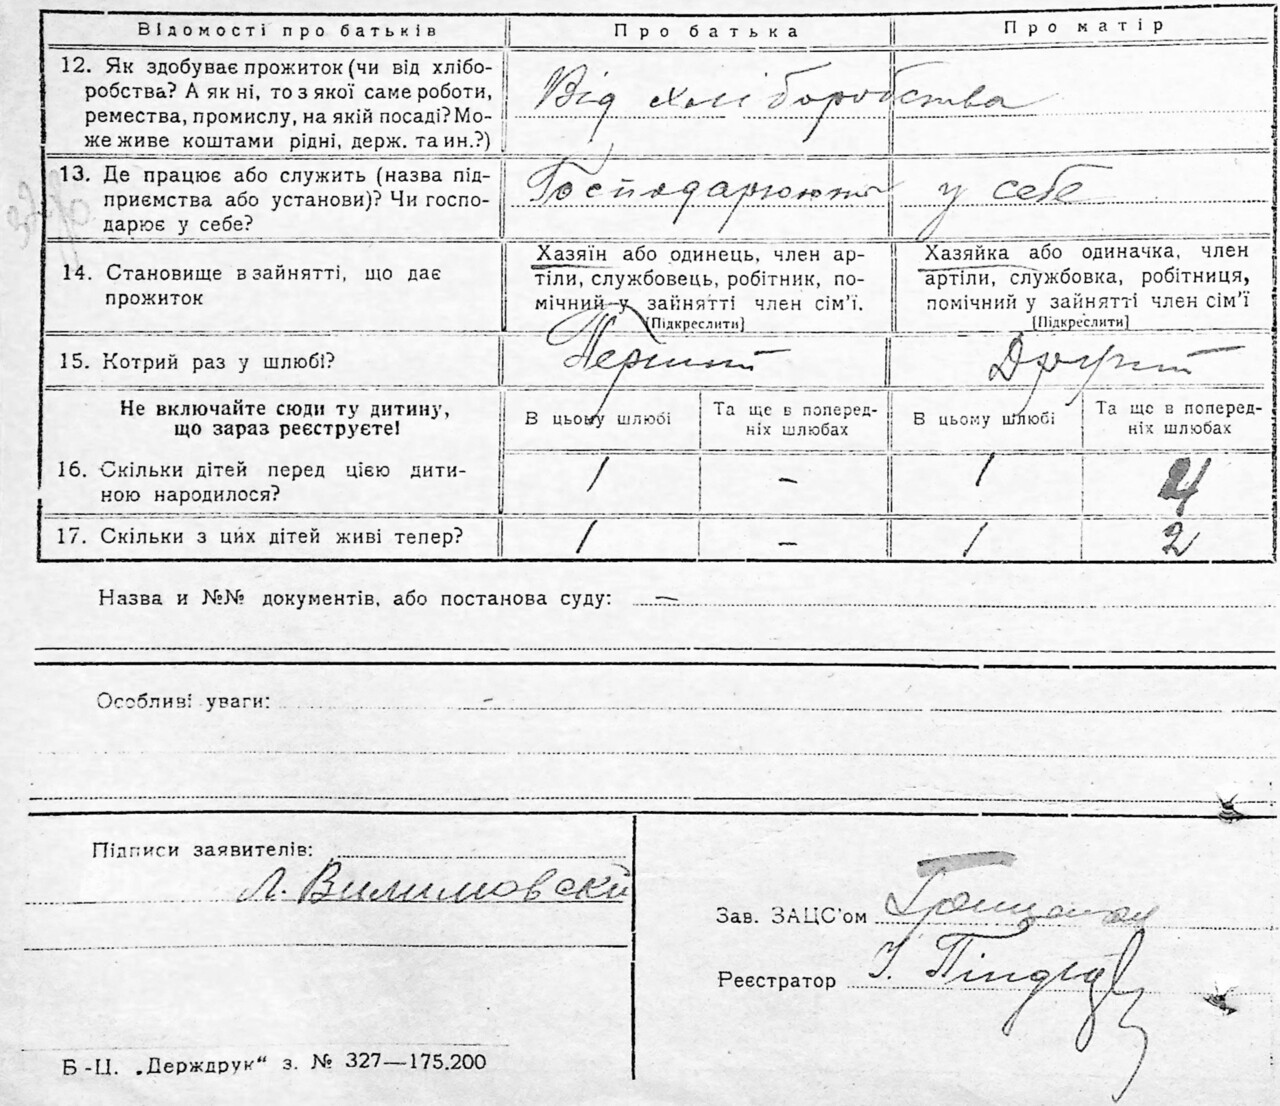 Відомості про батьків
Про батька
Про матір
12. Як здобуває прожиток (чи від хлібо-
робства? А як ні, то з якої саме роботи,
ремества, промислу, на якій посаді? Мо-
же живе коштами рідні, держ. та ин.?)
Від хліборобства
13. Де працює або служить (назва під-
приємства або установи)? Чи госпо-
дарює у себе?
Господарюють у себе
14. Становище в зайнятті, що дає
прожиток
Хазяїн або одинець, член ар-
тіли, службовець, робітник, по-
мічний у зайнятті член сім'ї.
[Підкреслити]
Хазяйка або одиначка, член
артіли, службовка, робітниця,
помічний у зайнятті член сім'ї
[Підкреслити]
15. Котрий раз у шлюбі?
Перший
Другий
Не включайте сюди ту дитину,
що зараз реєструєте!
В цьому шлюбі
Та ще в поперед-
ніх шлюбах
В цьому шлюбі
Та ще в поперед-
ніх шлюбах
16. Скільки дітей перед цією дити-
ною народилося?
1
-
1
17. Скільки з цих дітей живі тепер?
1
-
1
2
Назва и №№ документів, або постанова суду: —
Особливі уваги: -
Підписи заявителів:
Л. Вилимовски
Зав. ЗАЦС'ом
Реєстратор
Б-Ц. „Держдрук" з. № 327—175.200